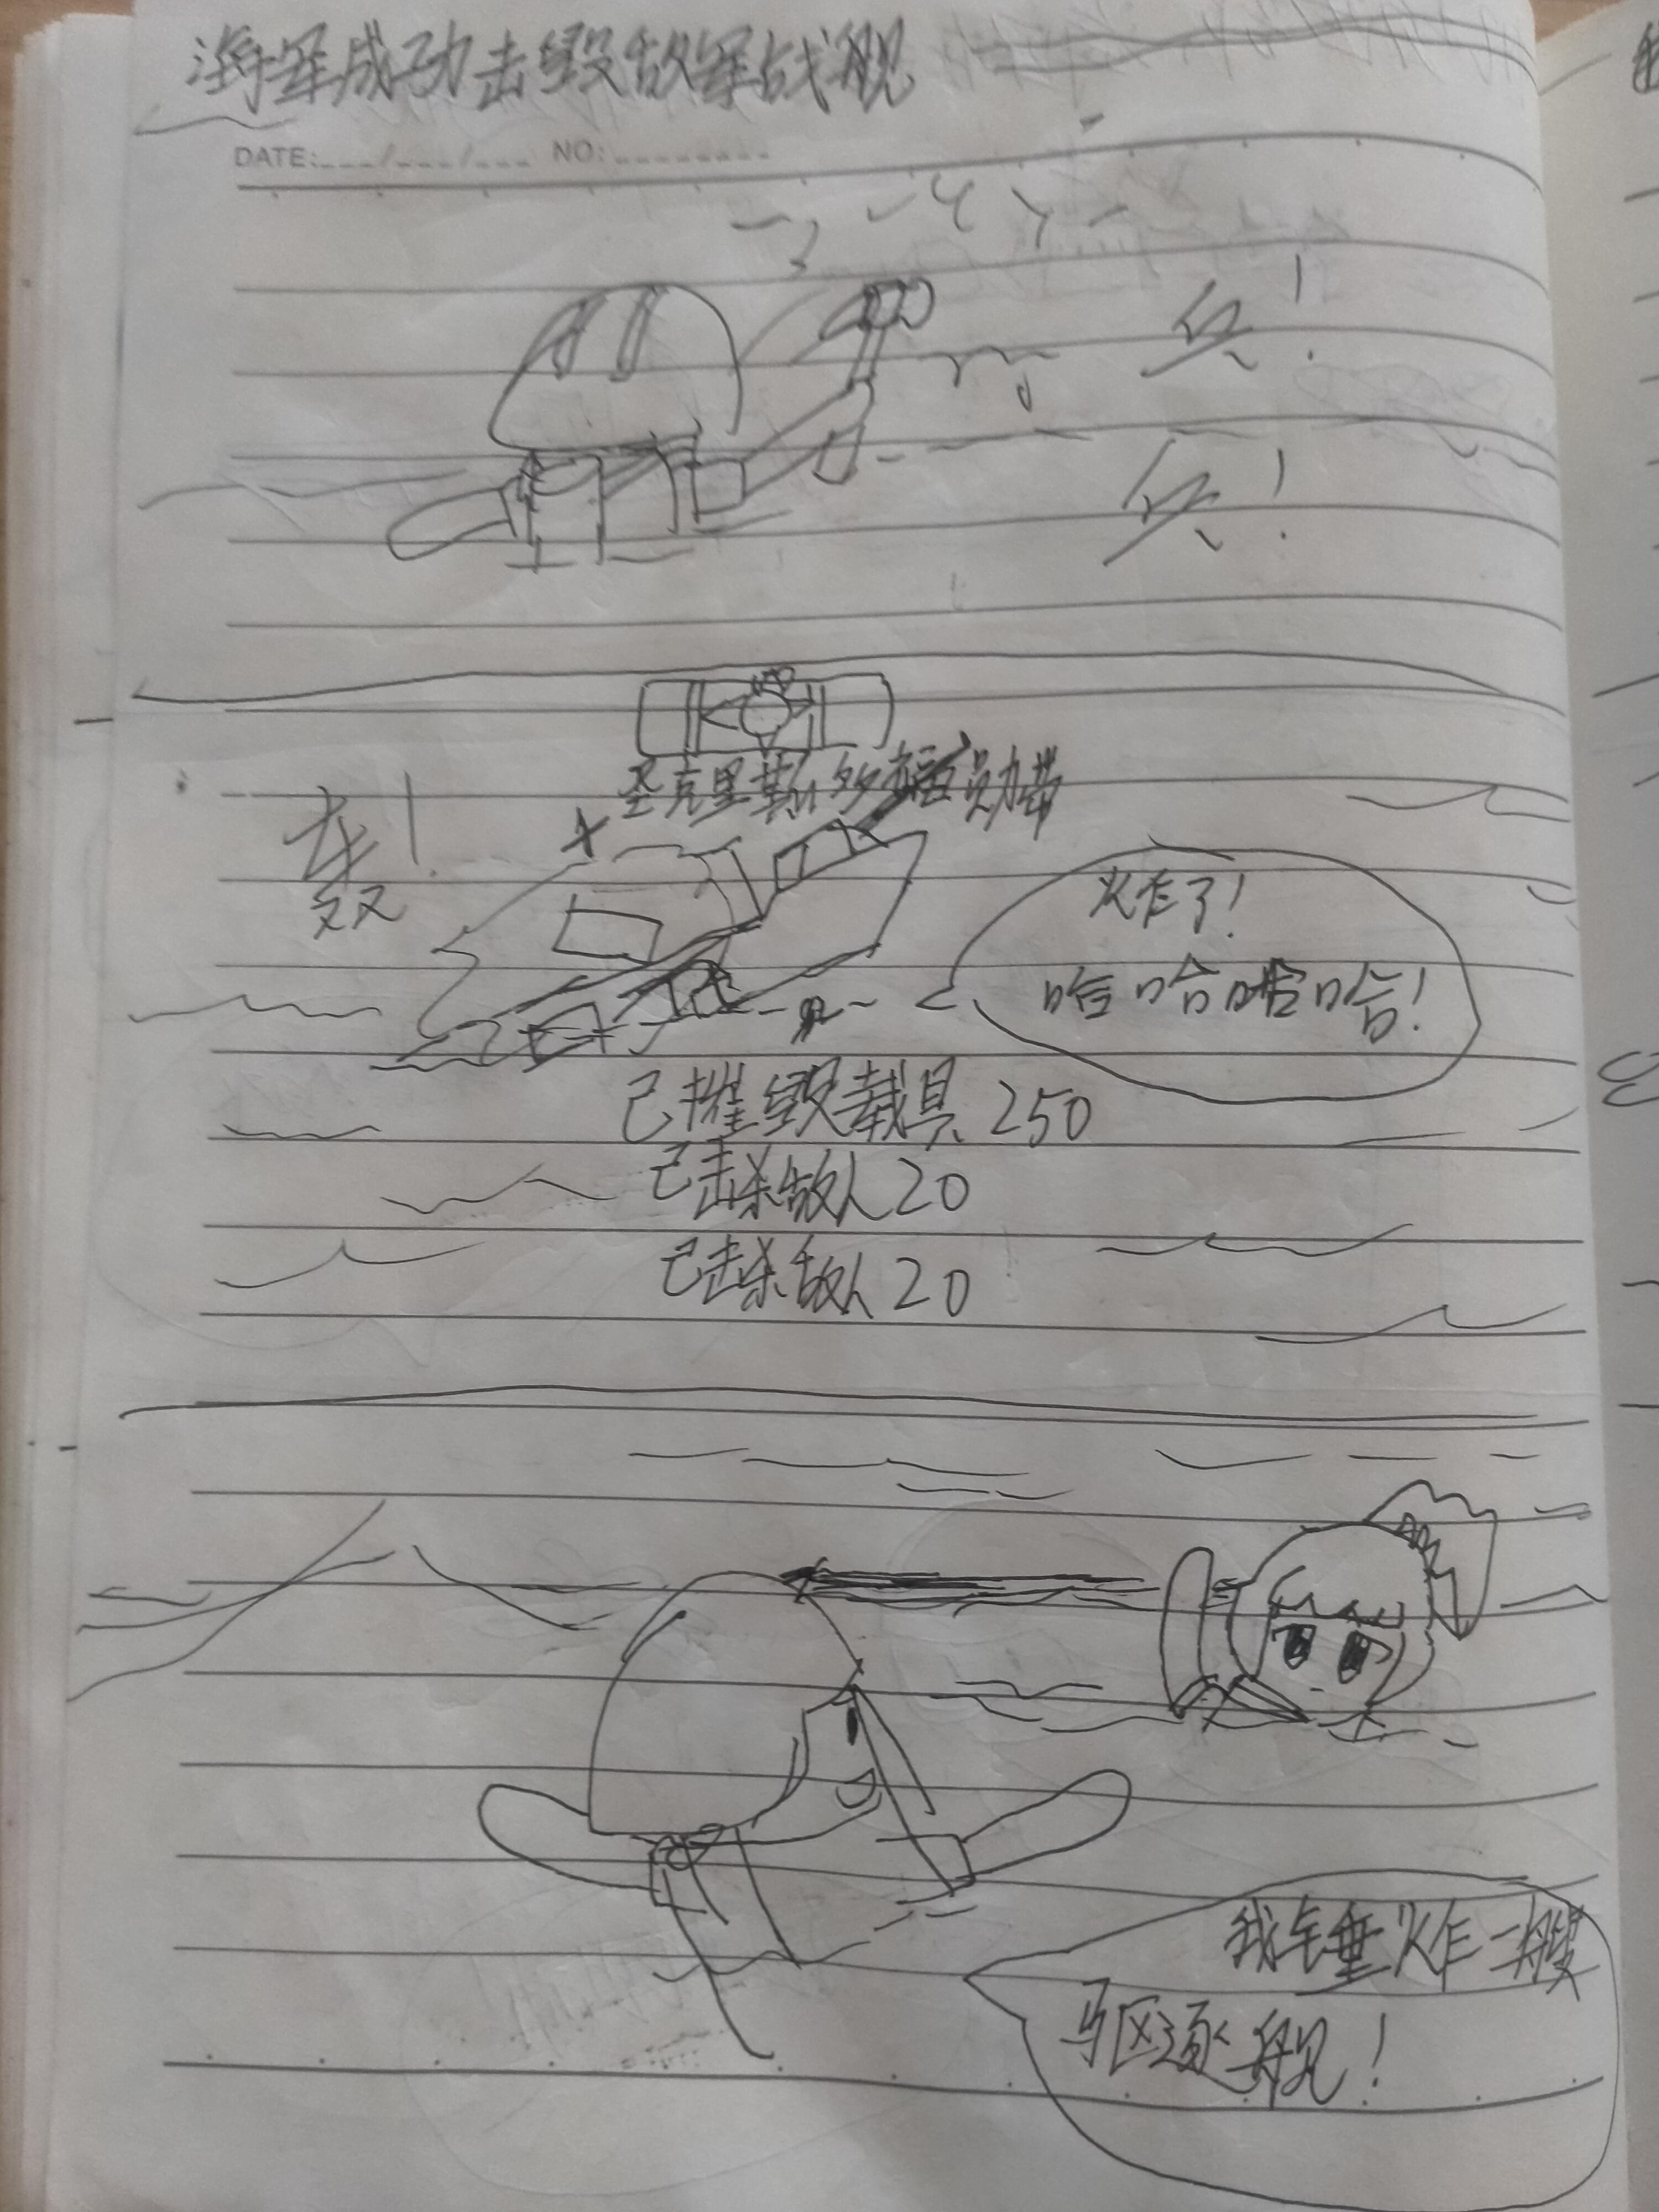 海军成功击毁敌军战舰
DATE:___/___/___ NO:________
乒!
乓!
轰!
圣克里斯多福勋带
炸了!
哈哈哈哈!
已摧毁载具 250
已击杀敌人 20
已击杀敌人 20
我锤炸一艘
驱逐舰!